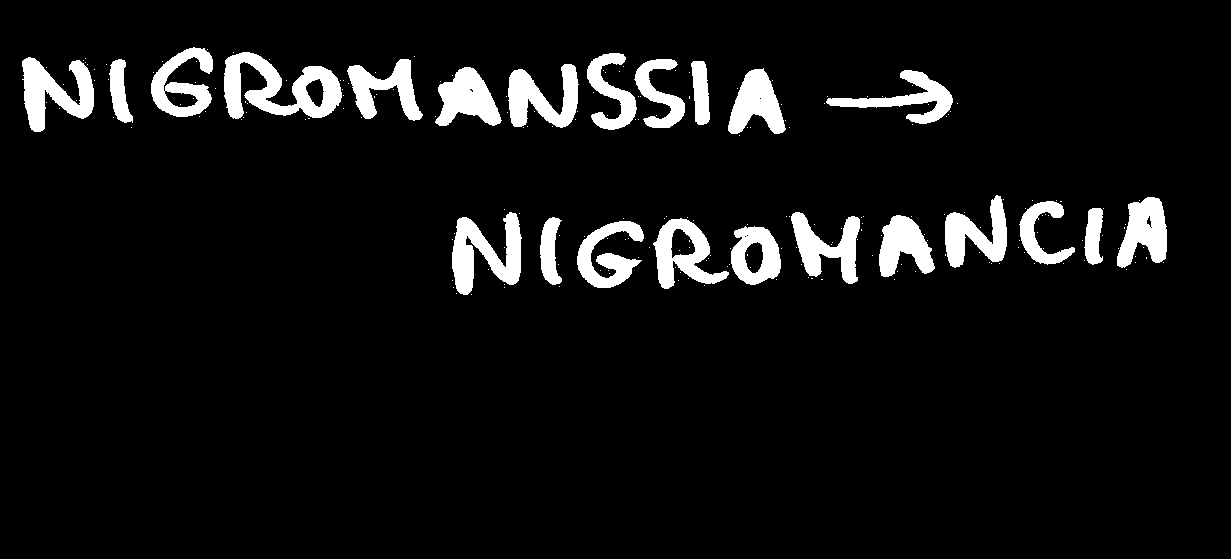 NIGROMANSSIA →
NIGROMANCIA